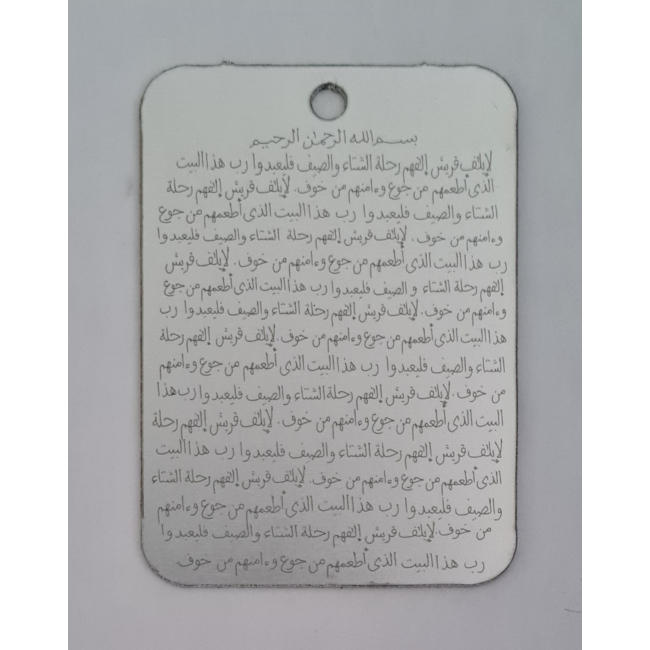 بسم الله الرحمن الرحيم
لإيلف قريش إلفهم رحلة الشتاء والصيف فليعبدوا رب هذا البيت
الذى أطعمهم من جوع وءامنهم من خوف. لإيلف قريش إلفهم رحلة
الشتاء والصيف فليعبدوا رب هذا البيت الذى أطعمهم من جوع
وءامنهم من خوف. لإيلف قريش إلفهم رحلة الشتاء والصيف فليعبدوا
رب هذا البيت الذى أطعمهم من جوع وءامنهم من خوف. لإيلف قريش
إلفهم رحلة الشتاء والصيف فليعبدوا رب هذا البيت الذى أطعمهم من جوع
وءامنهم من خوف. لإيلف قريش إلفهم رحلة الشتاء والصيف فليعبدوا رب
هذا البيت الذى أطعمهم من جوع وءامنهم من خوف. لإيلف قريش إلفهم رحلة
الشتاء والصيف فليعبدوا رب هذا البيت الذى أطعمهم من جوع وءامنهم
من خوف. لإيلف قريش إلفهم رحلة الشتاء والصيف فليعبدوا رب هذا
البيت الذى أطعمهم من جوع وءامنهم من خوف. لإيلف قريش إلفهم رحلة
لإيلف قريش إلفهم رحلة الشتاء والصيف فليعبدوا رب هذا البيت
الذى أطعمهم من جوع وءامنهم من خوف. لإيلف قريش إلفهم رحلة الشتاء
والصيف فليعبدوا رب هذا البيت الذى أطعمهم من جوع وءامنهم
من خوف. لإيلف قريش إلفهم رحلة الشتاء والصيف فليعبدوا
رب هذا البيت الذى أطعمهم من جوع وءامنهم من خوف.